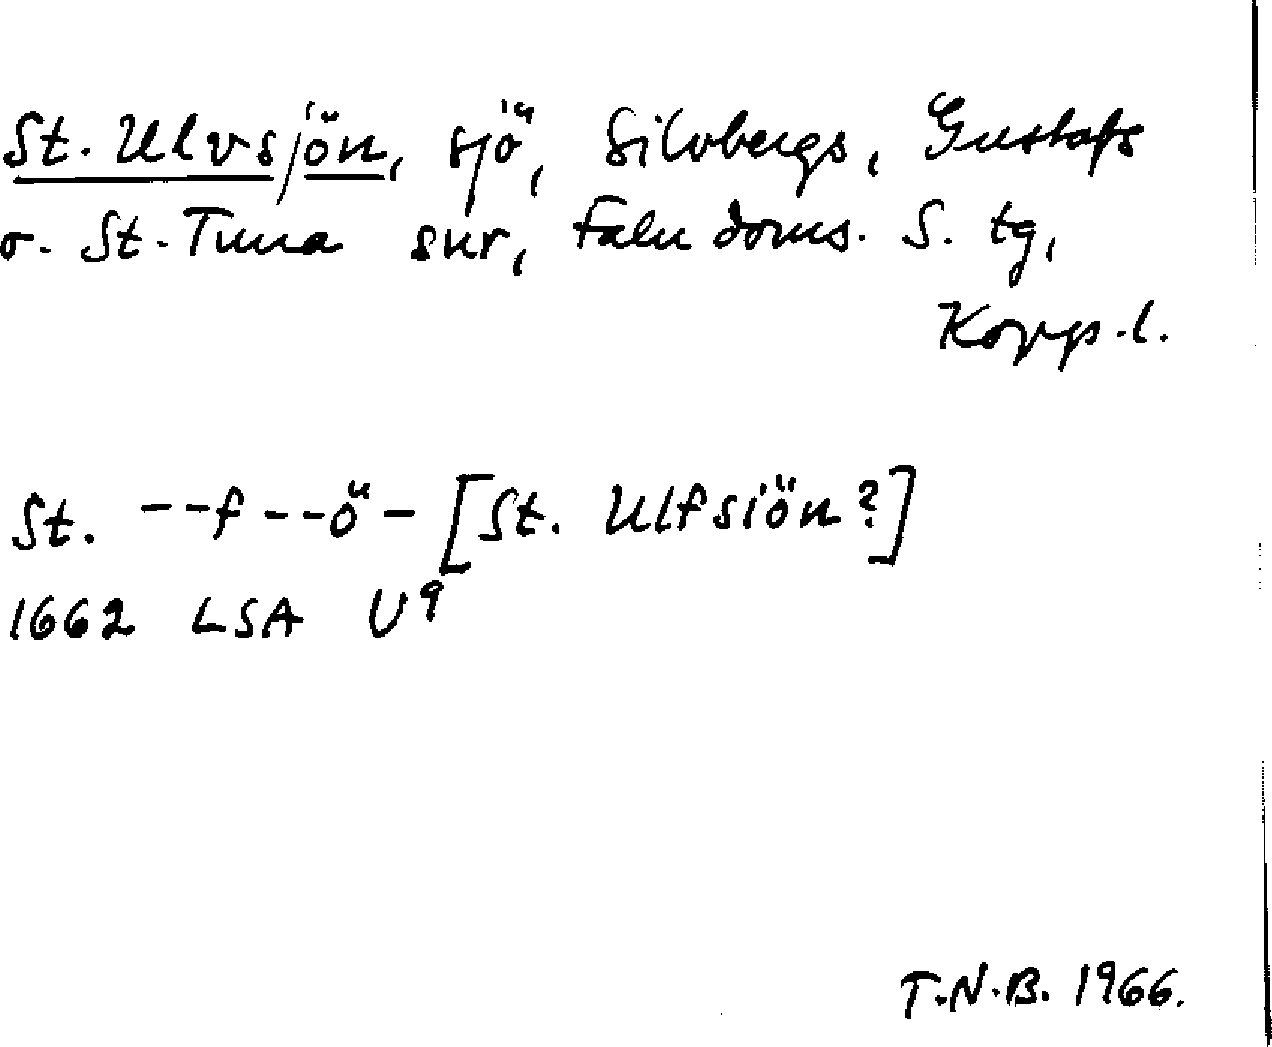 St. Ulvsjön, sjö, Silvbergs, Gustafs
o. St. Tuna snr, Falu doms. S. tg,
Kopp. l.
St. --f--ö- [St. Ulfsiön?]
1662 LSA U9
T.N.B. 1966.